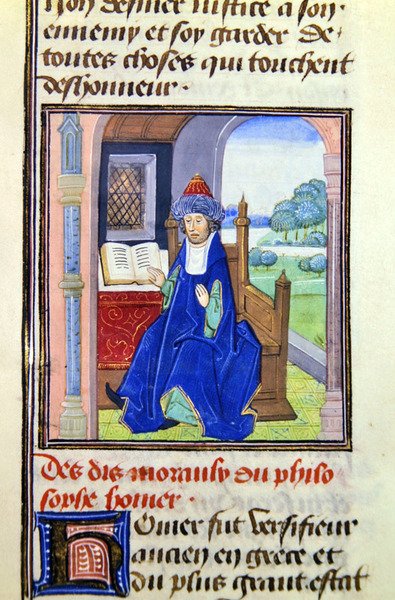 non desnier iustice a son
ennemy et soy garder de
toutes choses qui touchent
deshonneur ·
Des dis moraulx du philo
sophe homer ·
Homer fut versifieur
ancien en grece et
du plus grant estat